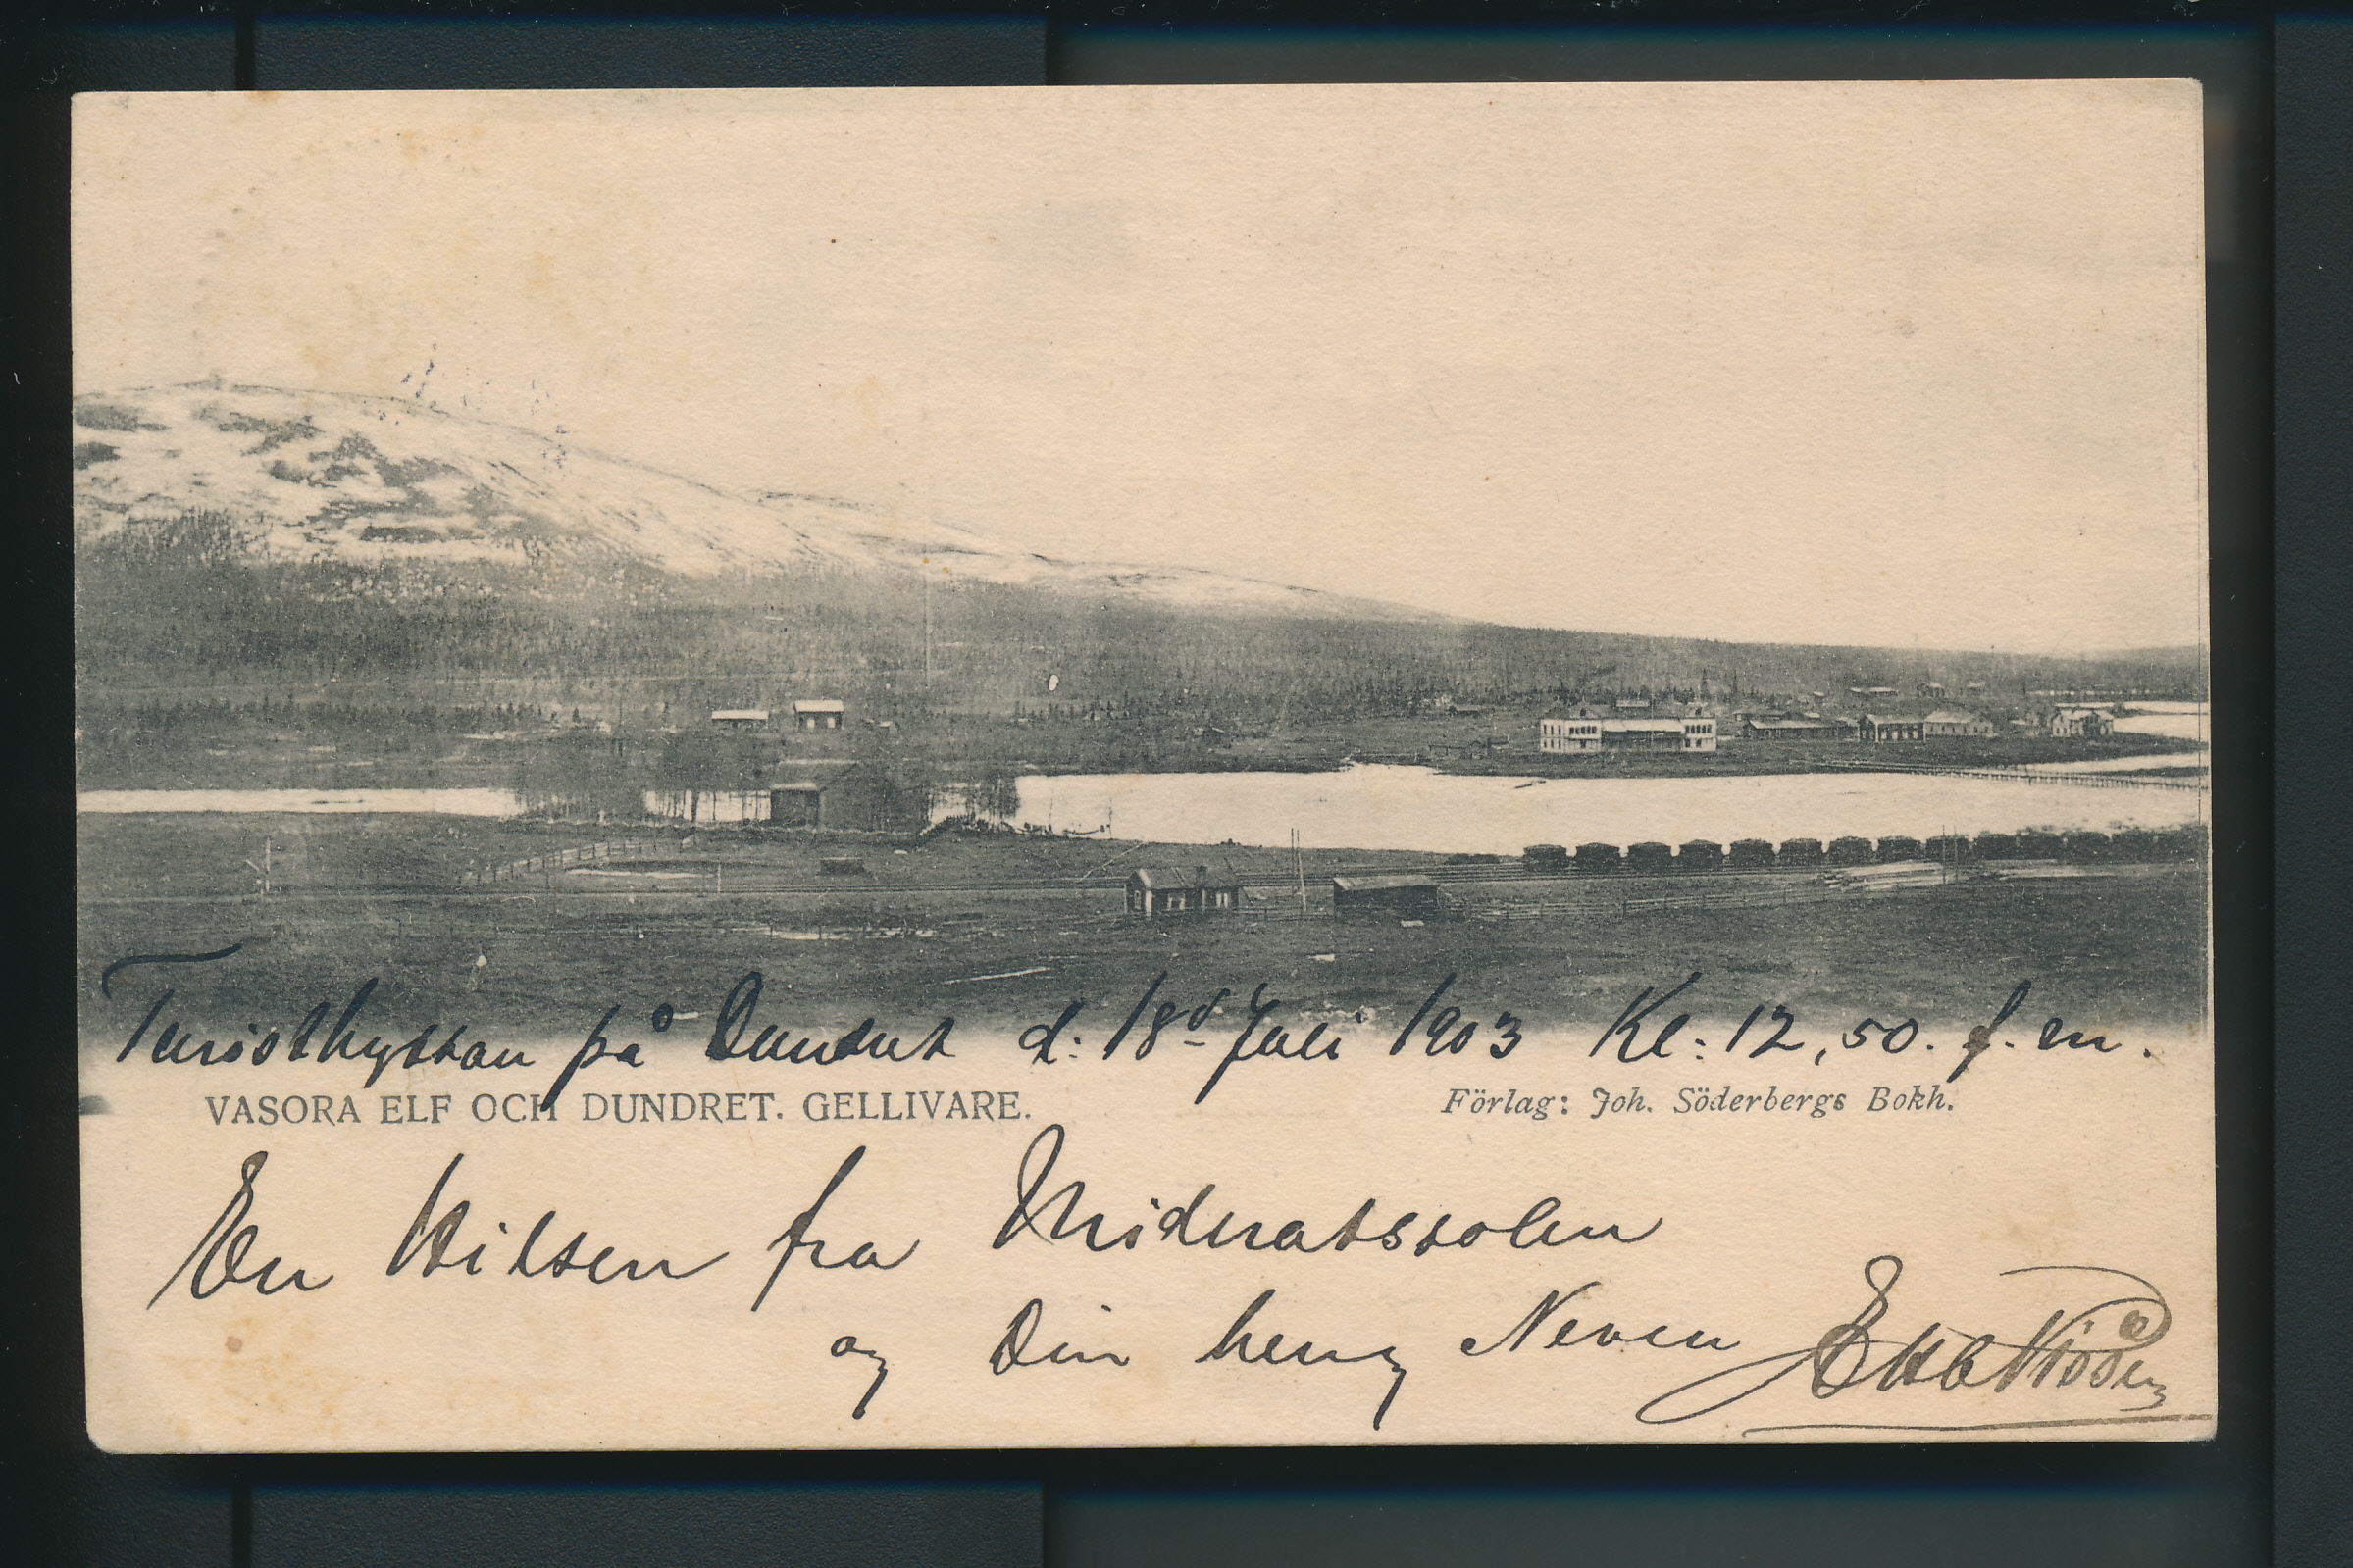 Turisthyttan på Dundret d: 18d Juli 1903 Kl: 12,50. f. m.
VASORA ELF OCH DUNDRET. GELLIVARE.
Förlag: Joh. Söderbergs Bokh.
En Hilsen fra Midnatssolen
og Din heng Neven